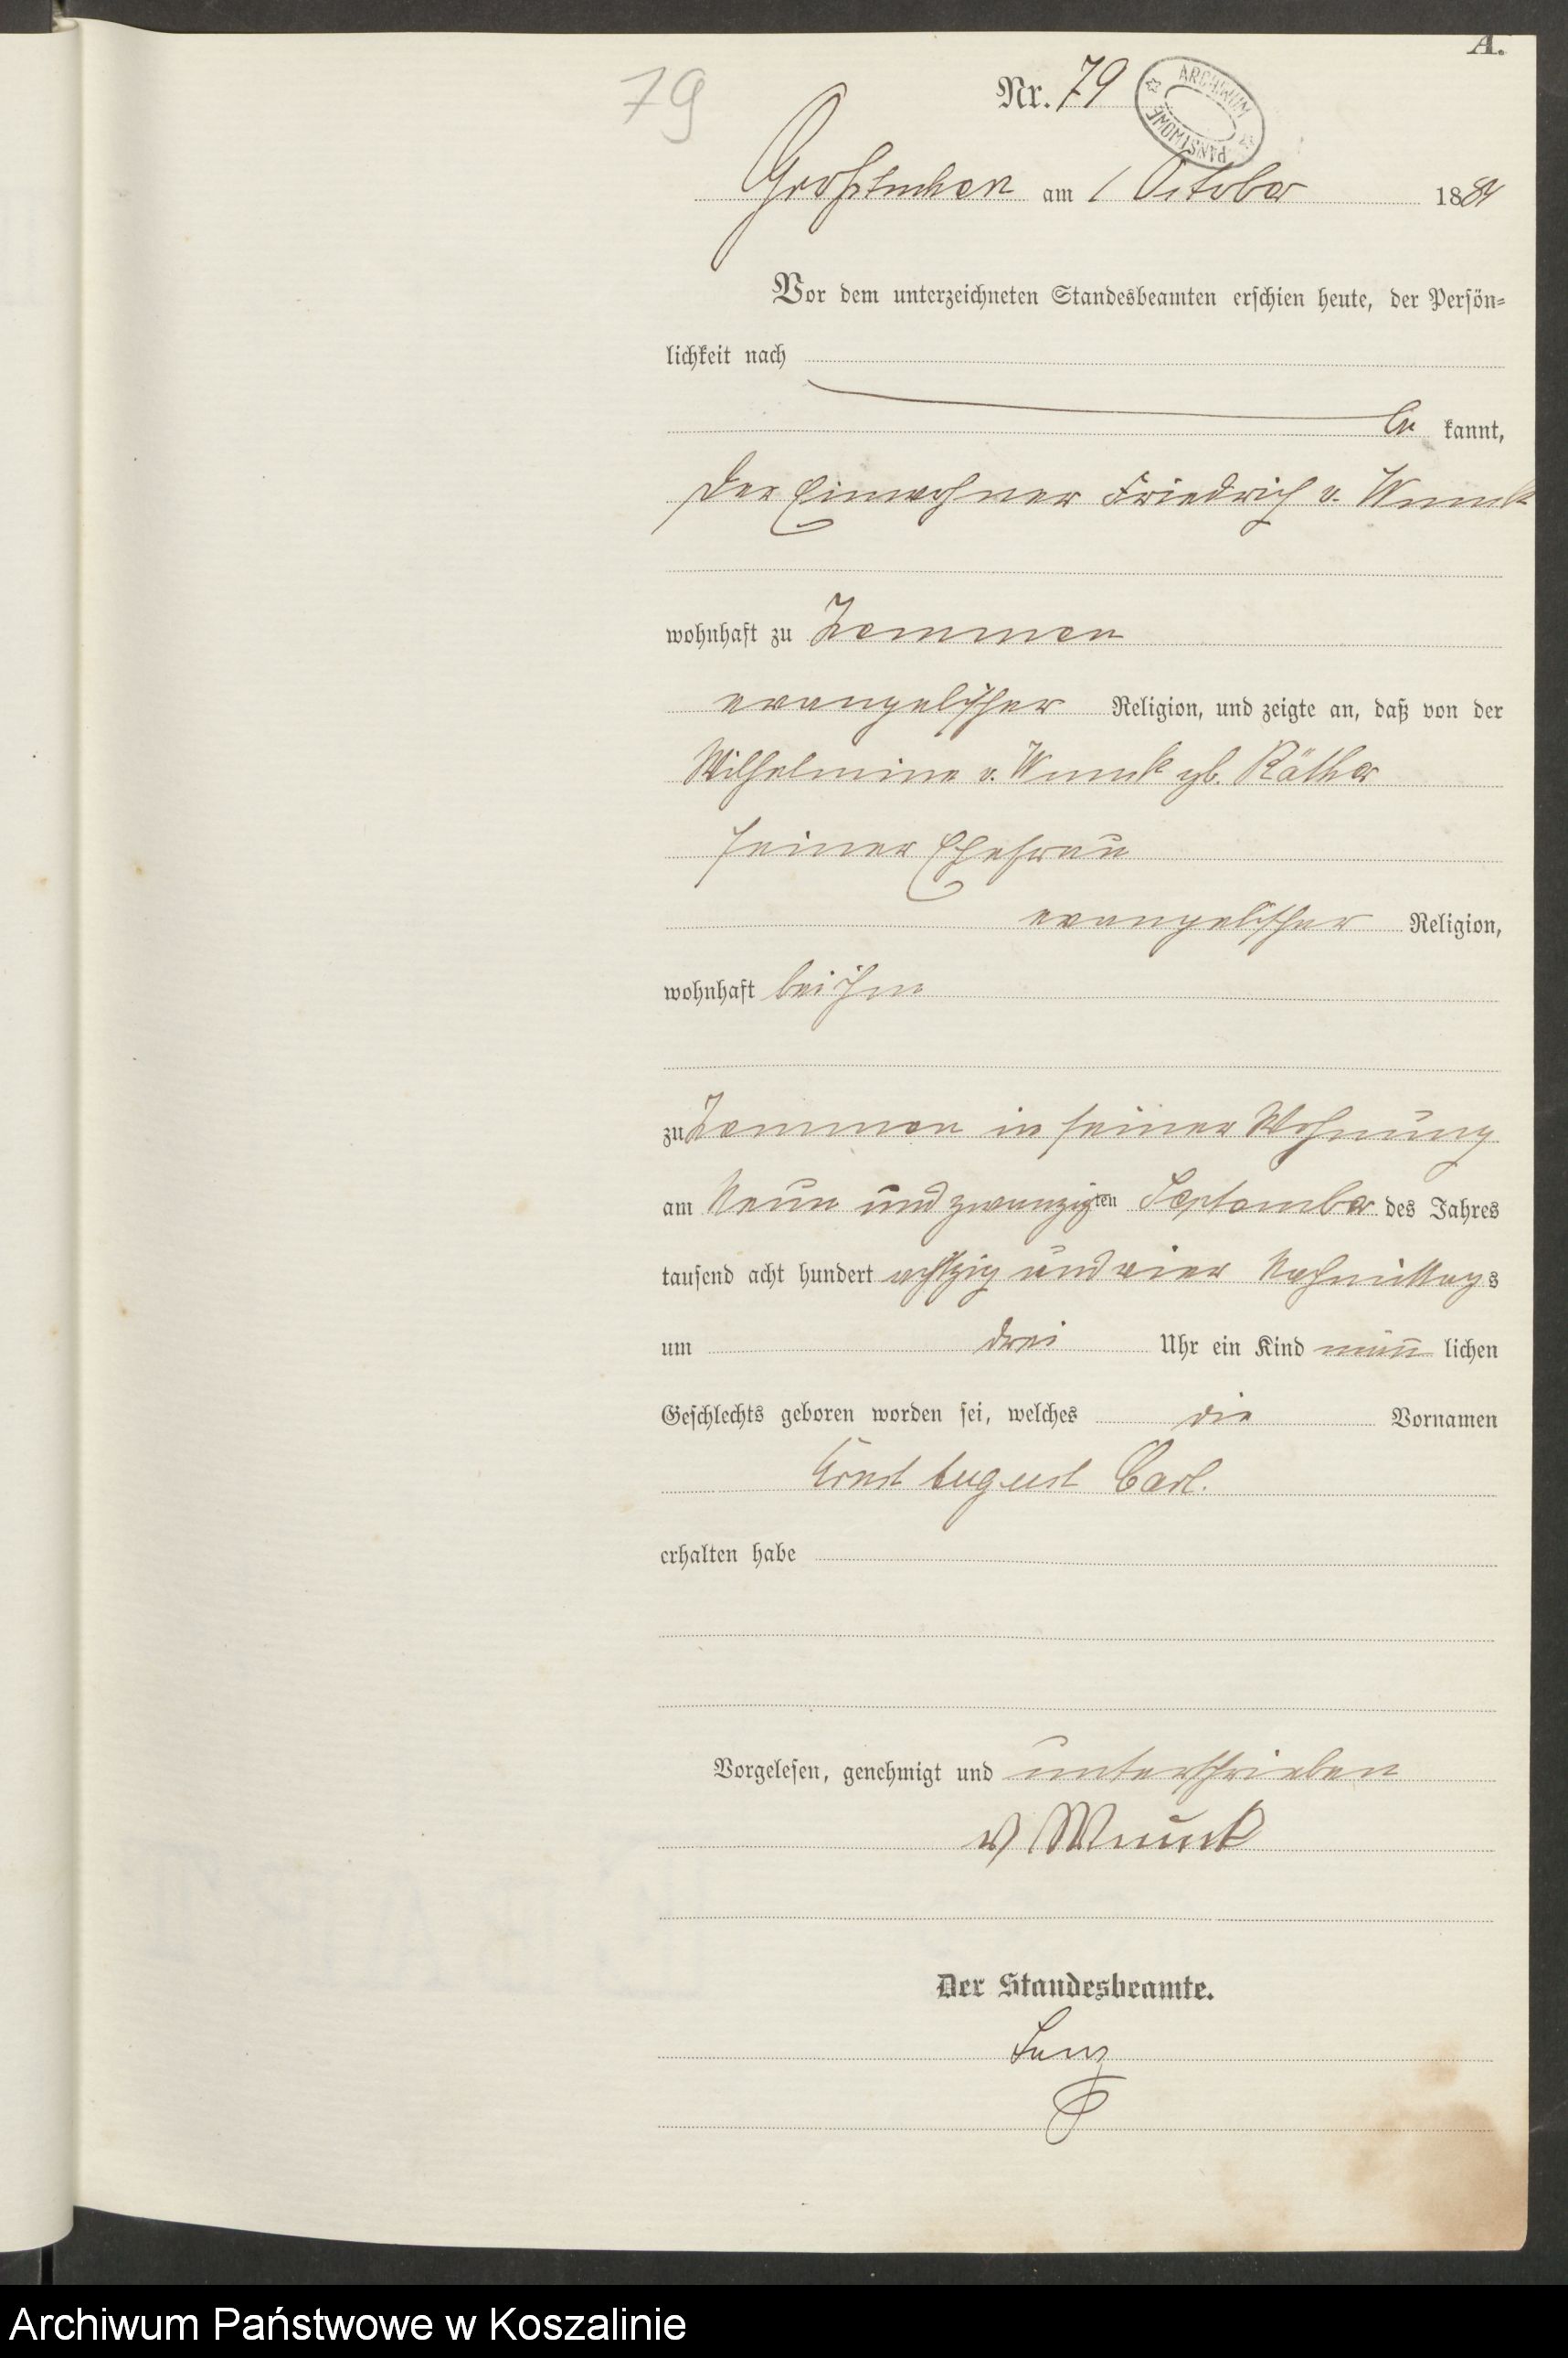 A.
79
Nr. 79
ARCHIWUM PAŃSTWOWE
Großtuchen am 1 October 1884
Vor dem unterzeichneten Standesbeamten erschien heute, der Persön=
lichkeit nach
be kannt,
der Einwohner Friedrich v. Wnuck
wohnhaft zu Zemmen
evangelischer Religion, und zeigte an, daß von der
Wilhelmine v. Wnuck gb. Räther
seiner Ehefrau
evangelischer Religion,
wohnhaft bei ihm
zu Zemmen in seiner Wohnung
am Neun und zwanzigten September des Jahres
tausend acht hundert achtzig und vier Nachmittags
um drei Uhr ein Kind männ lichen
Geschlechts geboren worden sei, welches die Vornamen
Ernst August Carl.
erhalten habe
Vorgelesen, genehmigt und unterschrieben
v Wnuck
Der Standesbeamte.
Archiwum Państwowe w Koszalinie